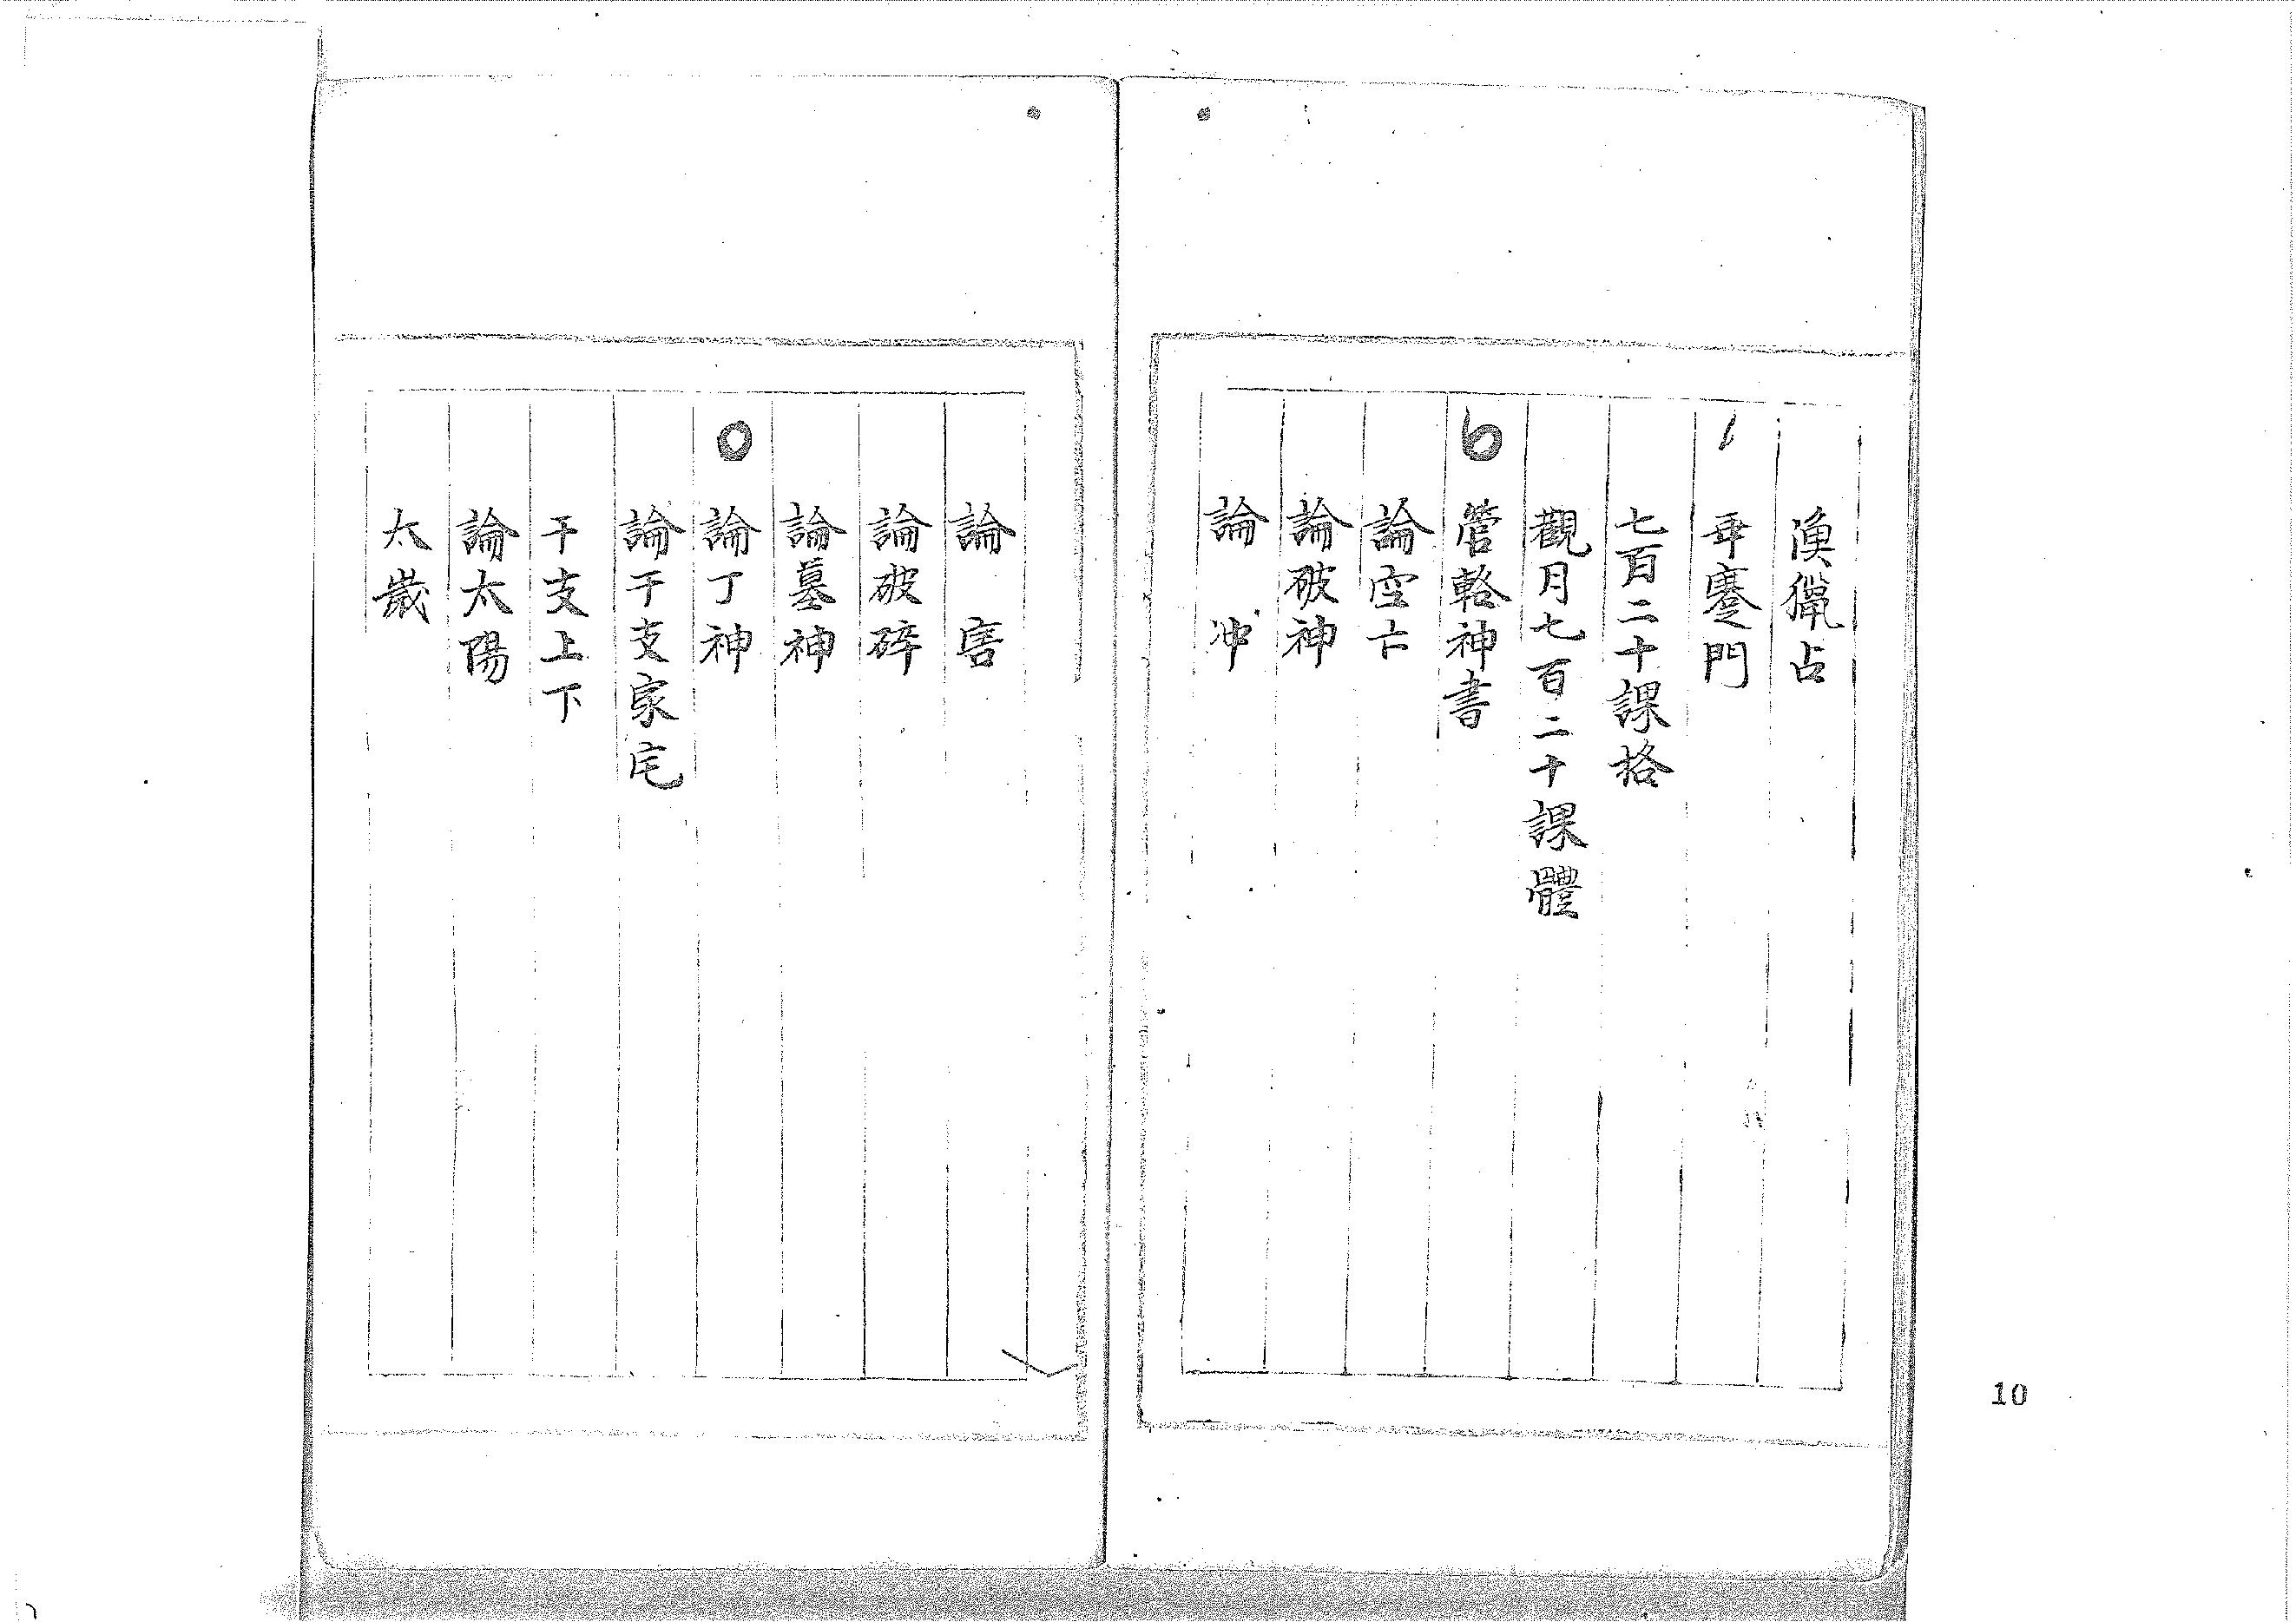 漁獵占
再蹇門
七百二十課格
觀月七百二十課體
管輅神書
論空亡
論破神
論 冲
論 害
論破碎
論墓神
論丁神
論干支家宅
干支上下
論太陽
太歲
10